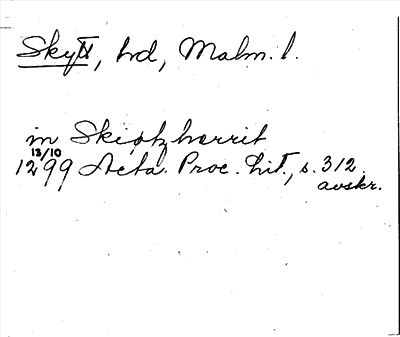 Skytt, hd, Malm. l.
in Skiøtzherrit
13/10
1299 Acta. Proc. Lit., s. 312.
avskr.